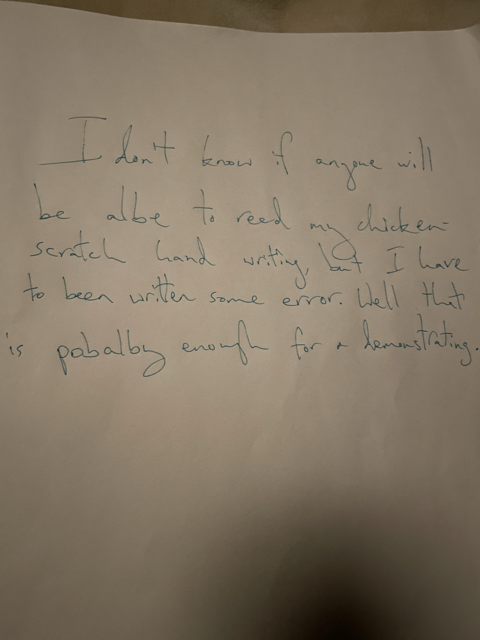 I don't know if anyone will
be albe to reed my chicken-
scratch hand writing, but I have
to been written some error. Well that
is pobalby enough for a demonstrating.